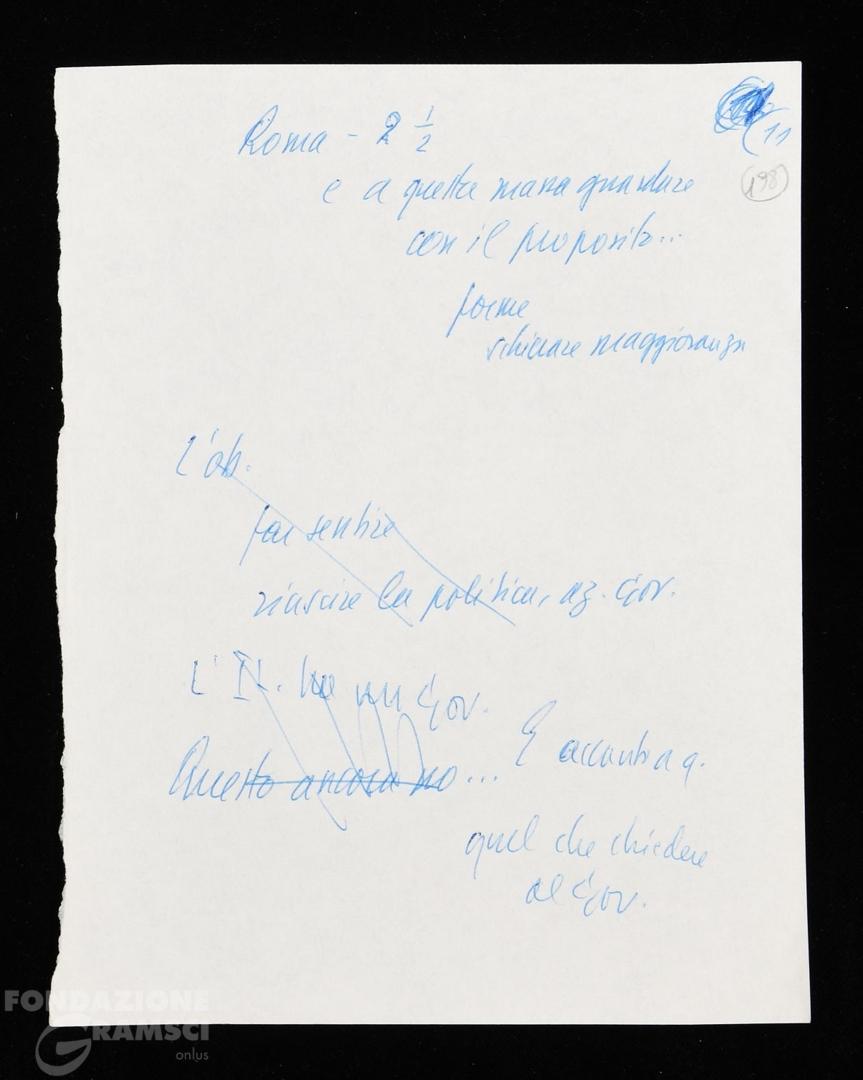 (11
198
Roma - 2 1/2
e a questa massa guardare
con il proposito...
forme
schierare maggioranza
L'ob.
far sentire
riuscire la politica, az. Gov.
L'It. ha un Gov.
Questo ancora no...
E accanto a q.
quel che chiedere
al Gov.
FONDAZIONE
GRAMSCI
onlus